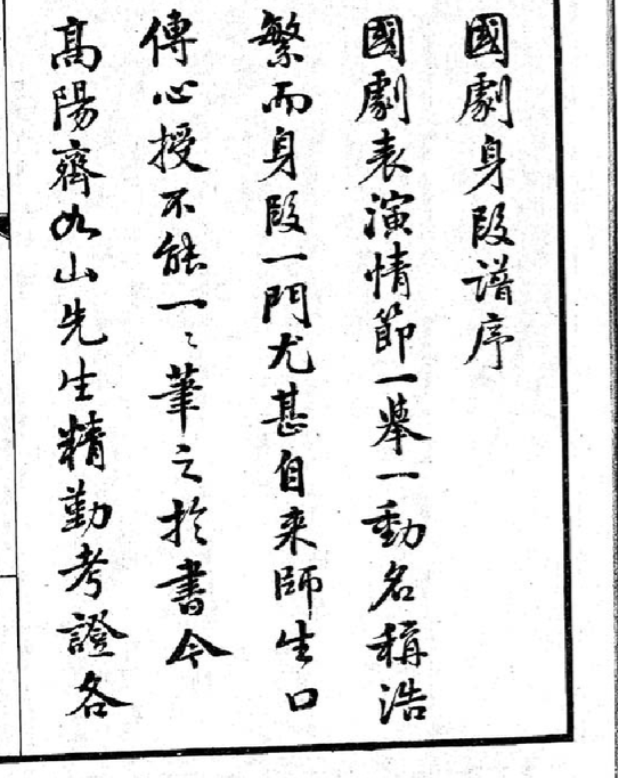 國劇身段譜序
國劇表演情節一舉一動名稱浩
繁而身段一門尤甚自来師生口
傳心授不能一〻筆之於書今
高陽齊如山先生精勤考證各